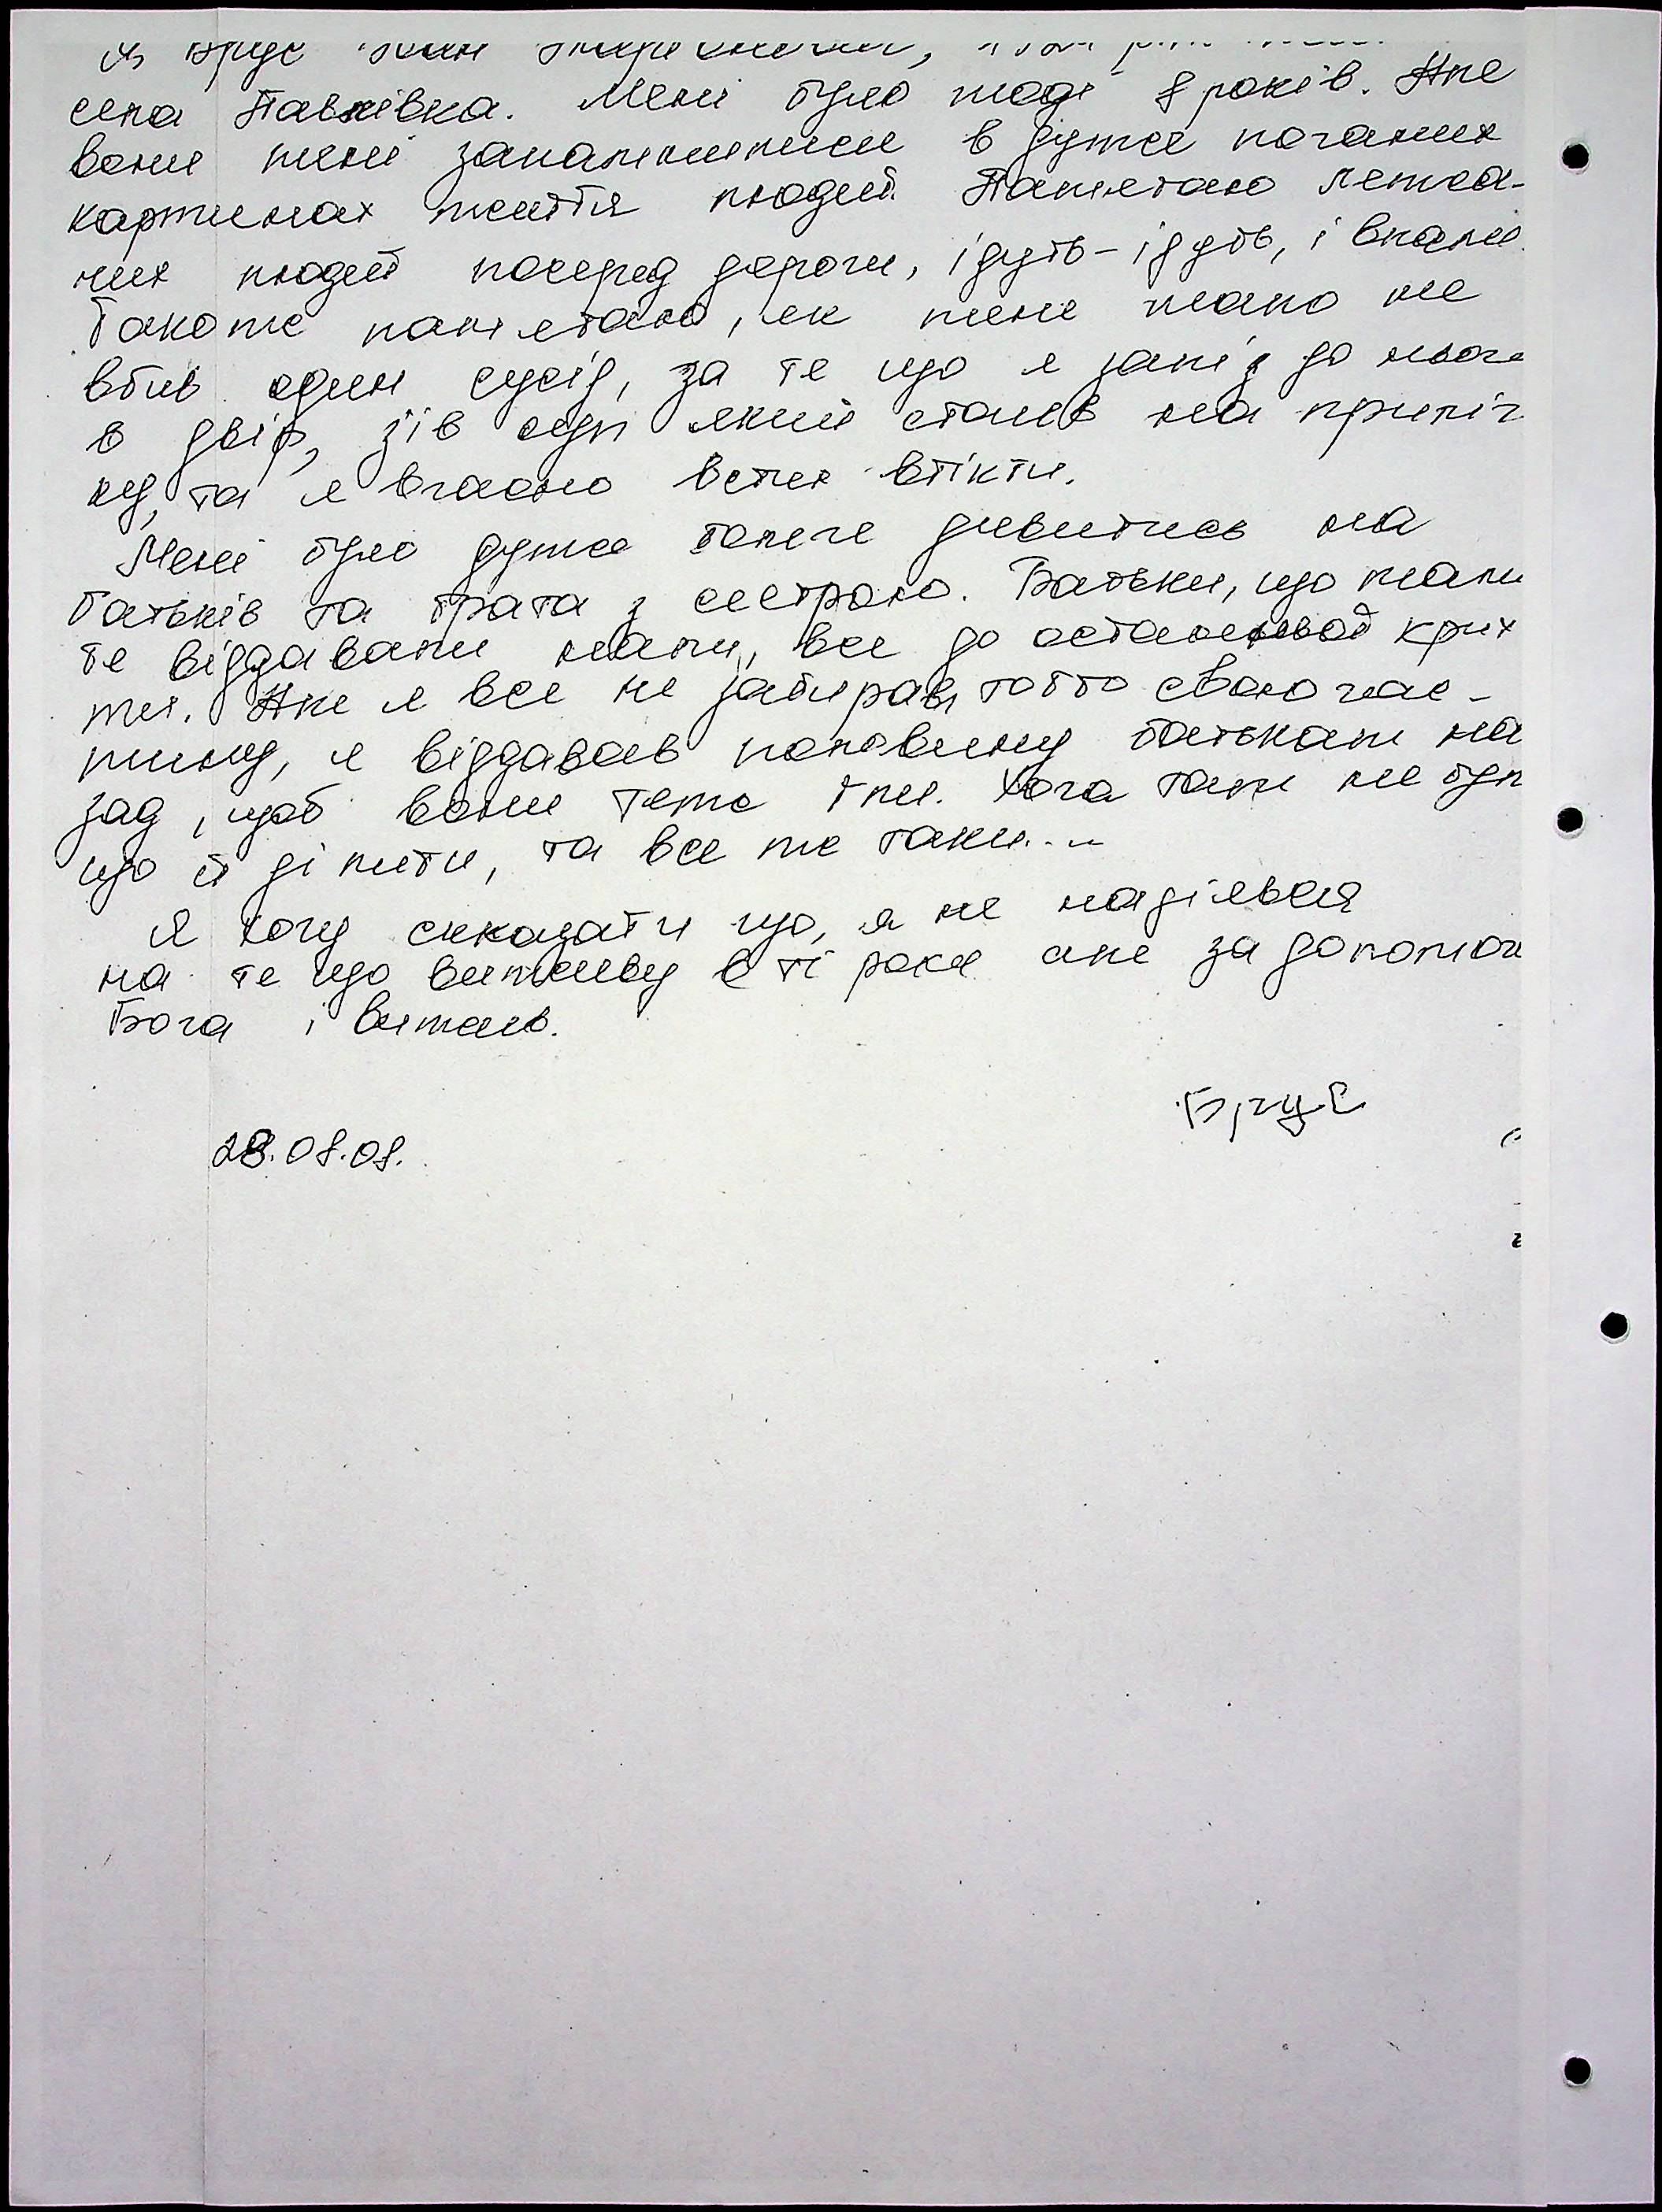 Я, Брус Іван
села Павлівка. Мені було тоді 8 років. Але
вони мені запамятились в дуже поганих
картинах життя людей. Памятаю лежа-
чих людей посеред дороги, ідуть-ідуть, і впали.
Також памятаю, як мене мало не
вбив один сусід, за те що я заліз до нього
в двір, зів суп який стояв на припіч
ку, та я вчасно встиг втікти.
Мені було дуже боляче дивитись на
батьків та брата з сестрою. Батьки, що мали
те віддавали нам, все до останньої крих
ти. Але я все не забирав, тобто свою час-
тину, я віддавав половину батькам на
зад, щоб вони теж їли. Хоча там не бул
що й ділити, та все же таки...
Я хочу сказати що, я не надіявся
на те що виживу в ті роки але за допомог
Бога і вижив.
Брус
28.08.08.